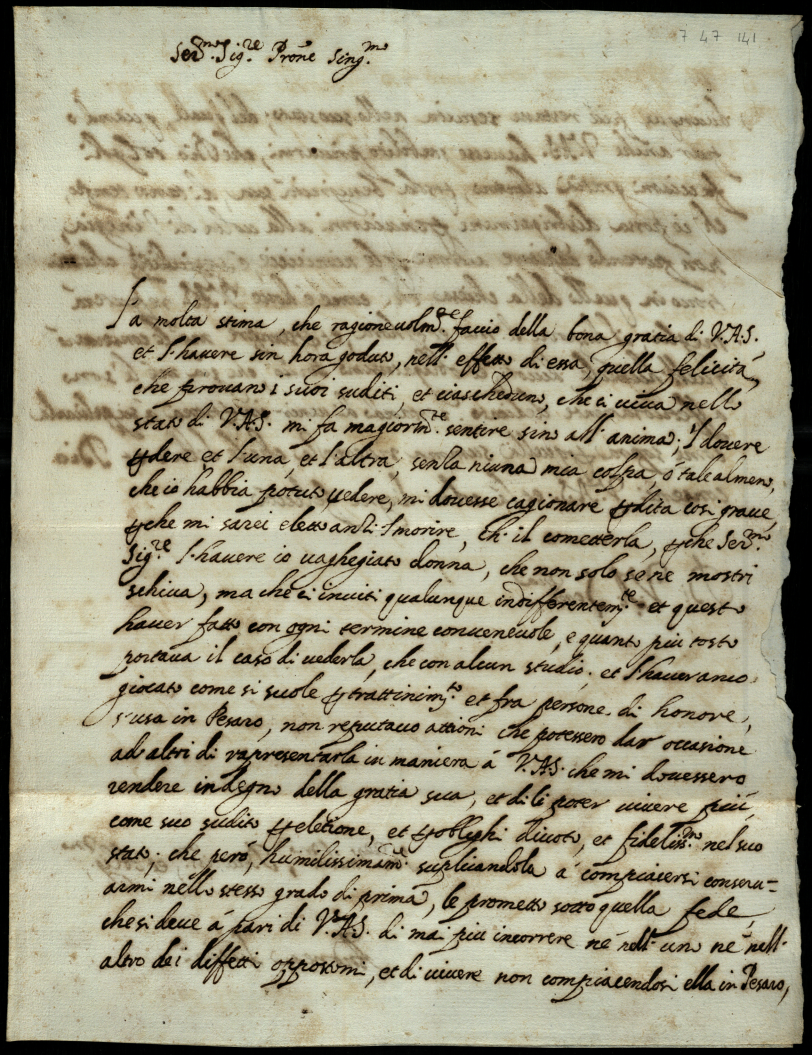 7 47 141
Ser.mo Sig.re Prone Sing.mo
La molta stima, che ragionevolm.te faccio della bona gratia di V.A.S.
et l'havere sin hora goduto, nell'effetto di essa, quella felicità,
che provano i suoi suditi, et ciascheduno, che ci viva nello
stato di V.A.S. mi fa magiorm.te sentire sin all'anima, il dovere
pdere et l'una, et l'altra, senza niuna mia colpa, ó tale almeno,
che io habbia potuto vedere, mi dovesse cagionare pdita cosi grave,
pche mi sarei eletto anzi il morire, ch'il cometterla, pche Ser.mo
Sig.re l'havere io vaghegiato donna, che non solo se ne mostri
schiva, ma che ci inviti qualunque indifferentem.te et questo
haver fatto con ogni termine convenevole, e quanto più tosto
portava il caso di vederla, che con alcun studio; et l'haver anco
giocato come si suole p trattinim.to et fra persone di honore,
s'usa in Pesaro, non reputavo attioni che potessero dar occasione
ad altri di rapresentarla in maniera á V.A.S. che mi dovessero
rendere indegno della gratia sua, et di li poter vivere più,
come suo sudito p eletione, et p oblighi divoto, et fideliss.mo nel suo
stato; che però, humilissimam.te suplicandola à compiacersi conserv=
armi nello stesso grado di prima, le prometto sotto quella fede,
che si deve á pari di V.A.S. di mai più incorrere né nell'uno né nell'
altro dei diffetti oppostomi, et di vivere non compiacendosi ella in Pesaro,